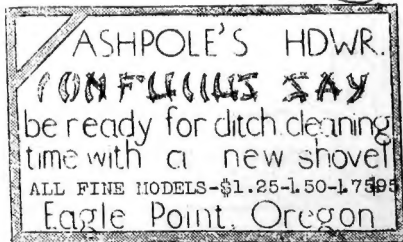 ASHPOLE'S HDWR.
CONFUCIUS SAY
be ready for ditch cleaning
time with a new shovel
ALL FINE MODELS-$1.25-1.50-1.7595
Eagle Point, Oregon